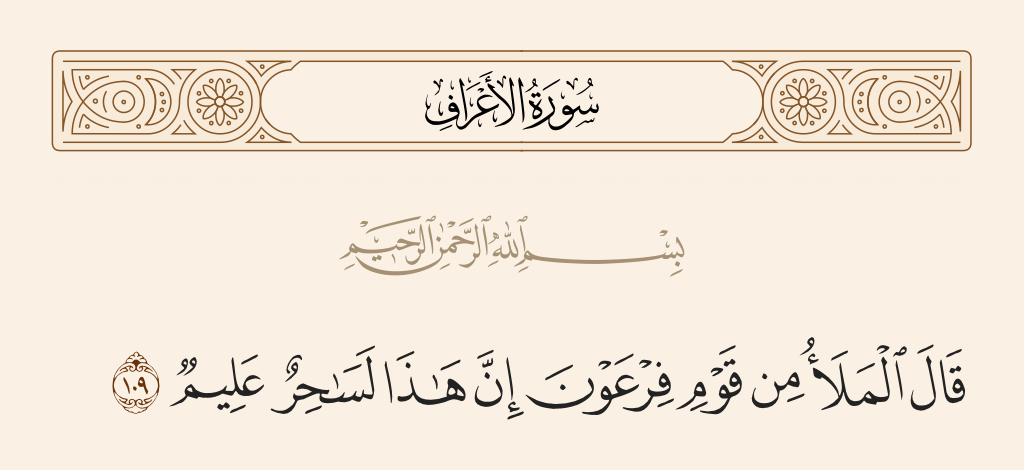 سُورَةُ الأَعْرَافِ
بِسْمِ ٱللَّهِ ٱلرَّحْمَٰنِ ٱلرَّحِيمِ
قَالَ ٱلْمَلَأُ مِن قَوْمِ فِرْعَوْنَ إِنَّ هَٰذَا لَسَٰحِرٌ عَلِيمٌ ١٠٩